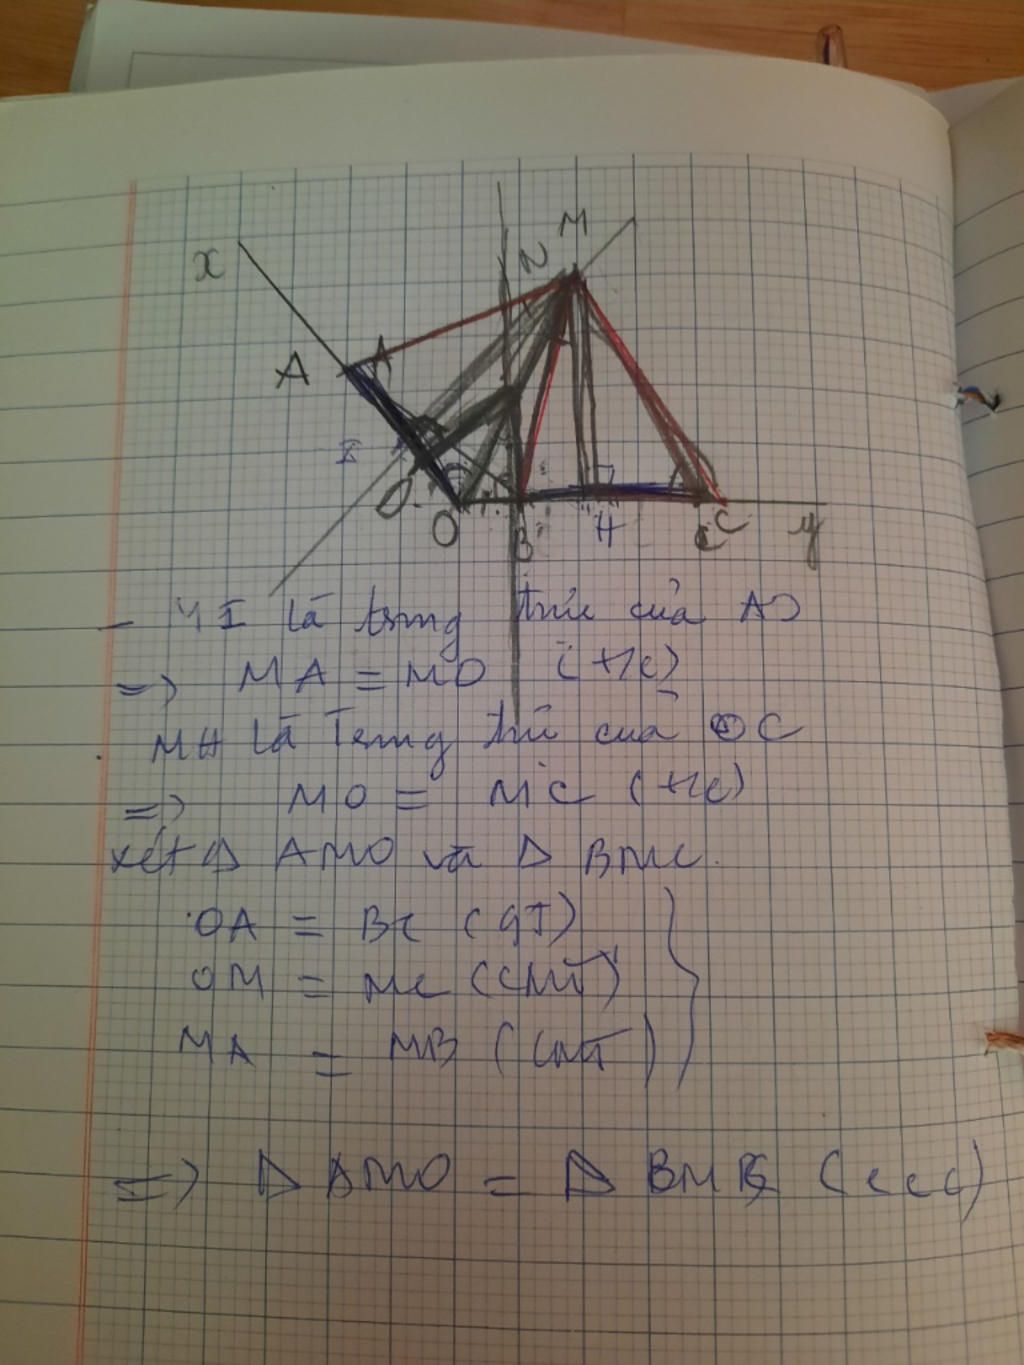 M
N
x
A
A
I
O
O
B
H
C
C
y
- MI là trung trực của AO
=> MA = MO (t/c)
. MH là Trung trực của OC
=> MO = MC (t/c)
xét Δ AMO và Δ BMC.
OA = BC (GT)
OM = MC (CMT)
MA = MB (CMT)
=> Δ AMO = Δ BMC (ccc)